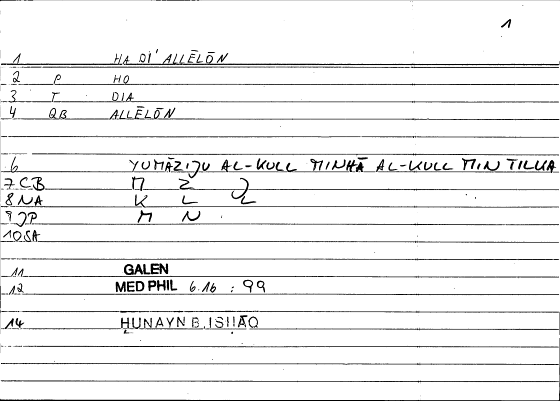 1
1 HA DI' ALLĒLŌN
2 P HO
3 T DIA
4 QB ALLĒLŌN
6 YUMĀZIJU AL-KULL MINHĀ AL-KULL MIN TILKA
7 CB M Z J
8 NA K L L
9 JP M N
10 SA
11 GALEN
12 MED PHIL 6.16 : 99
14 ḤUNAYN B. ISḤĀQ